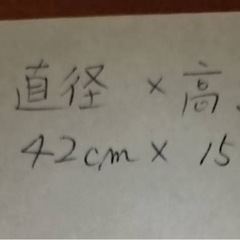 直径 × 高
42cm × 15